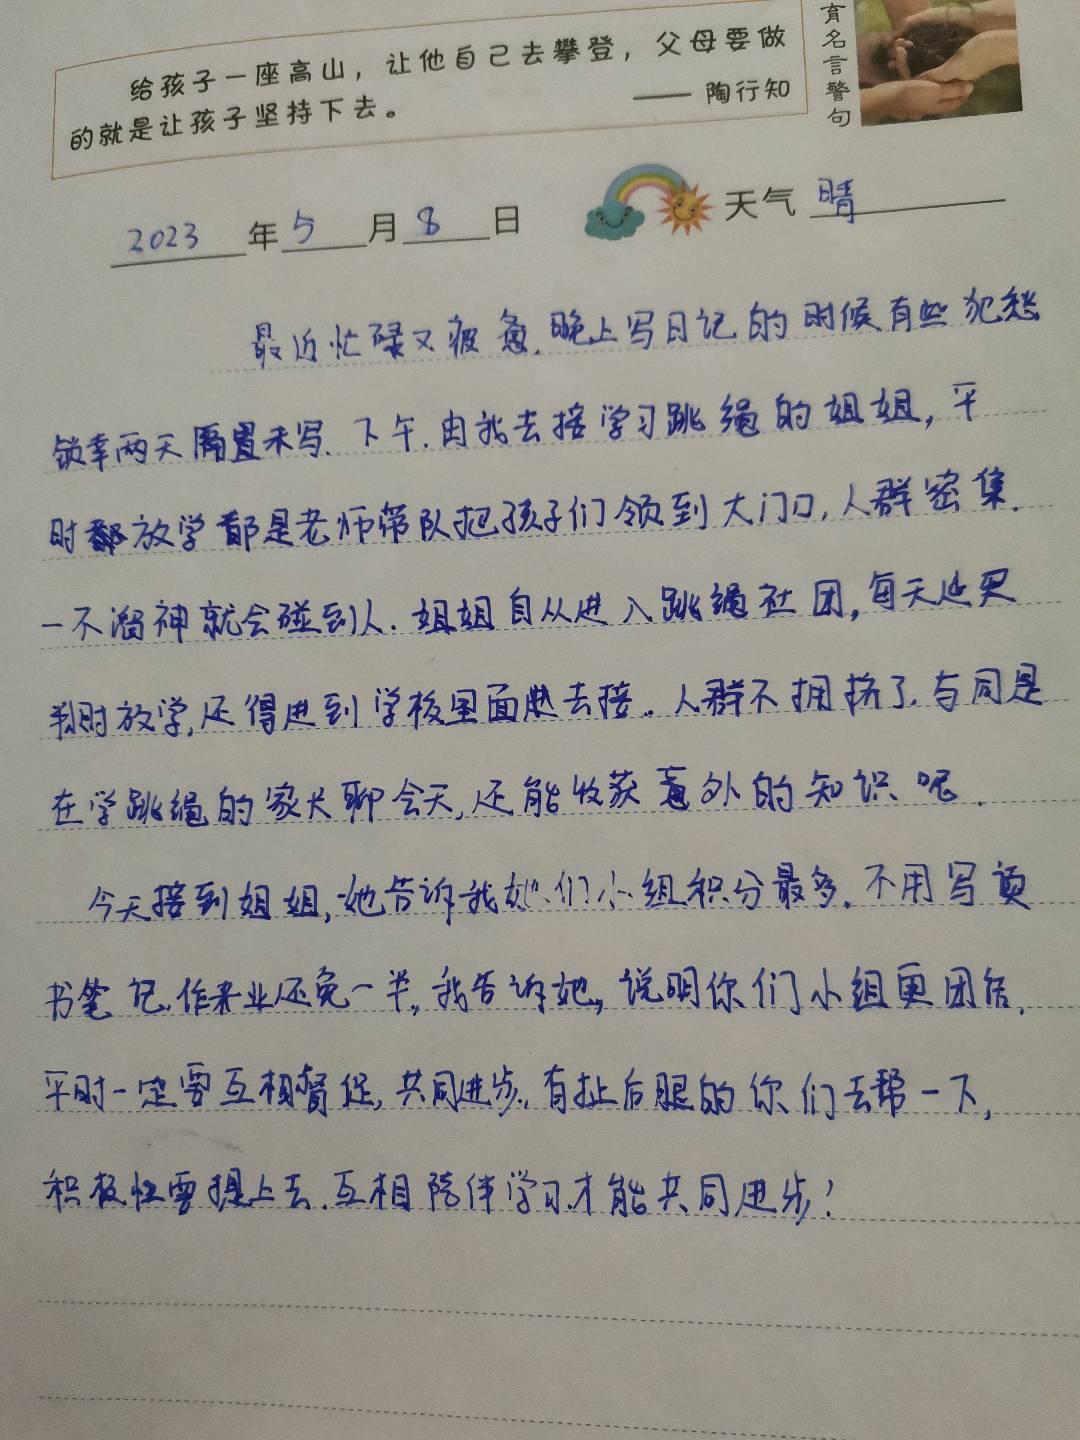 育名言警句
给孩子一座高山，让他自己去攀登，父母要做
的就是让孩子坚持下去。
—— 陶行知
2023年5月8日 天气 晴
最近忙碌又疲惫.晚上写日记的时候有些犯愁
两天闲置未写.下午.由我去接学习跳绳的姐姐,平
时放学都是老师带队把孩子们领到大门口,人群密集.
一不溜神就会碰到人.姐姐自从进入跳绳社团,每天
时放学,还得进到学校里面去接.人群不拥挤了.与同是
在学跳绳的家长聊会天,还能收获意外的知识呢.
今天接到姐姐,她告诉我她们小组积分最多.不用写
书笔记.作业还免一半,我告诉她,说明你们小组更团结.
平时一定要互相督促,共同进步.有扯后腿的你们去帮一下,
积极性要提上去.互相陪伴学习.才能共同进步!